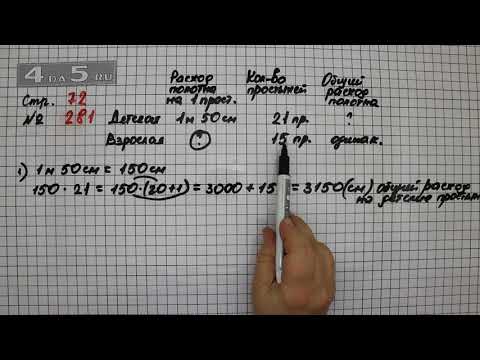 4 DA 5 .RU
Расход Кол-во Общий
полотна простыней расход
на 1 прост. полотна
Стр. 72
№ 281 Детская 1 м 50 см 21 пр. ?
Взрослая ? 15 пр. одинак.
1) 1 м 50 см = 150 см
150 · 21 = 150 · (20+1) = 3000 + 15 = 3150 (см) общий расход
на детские